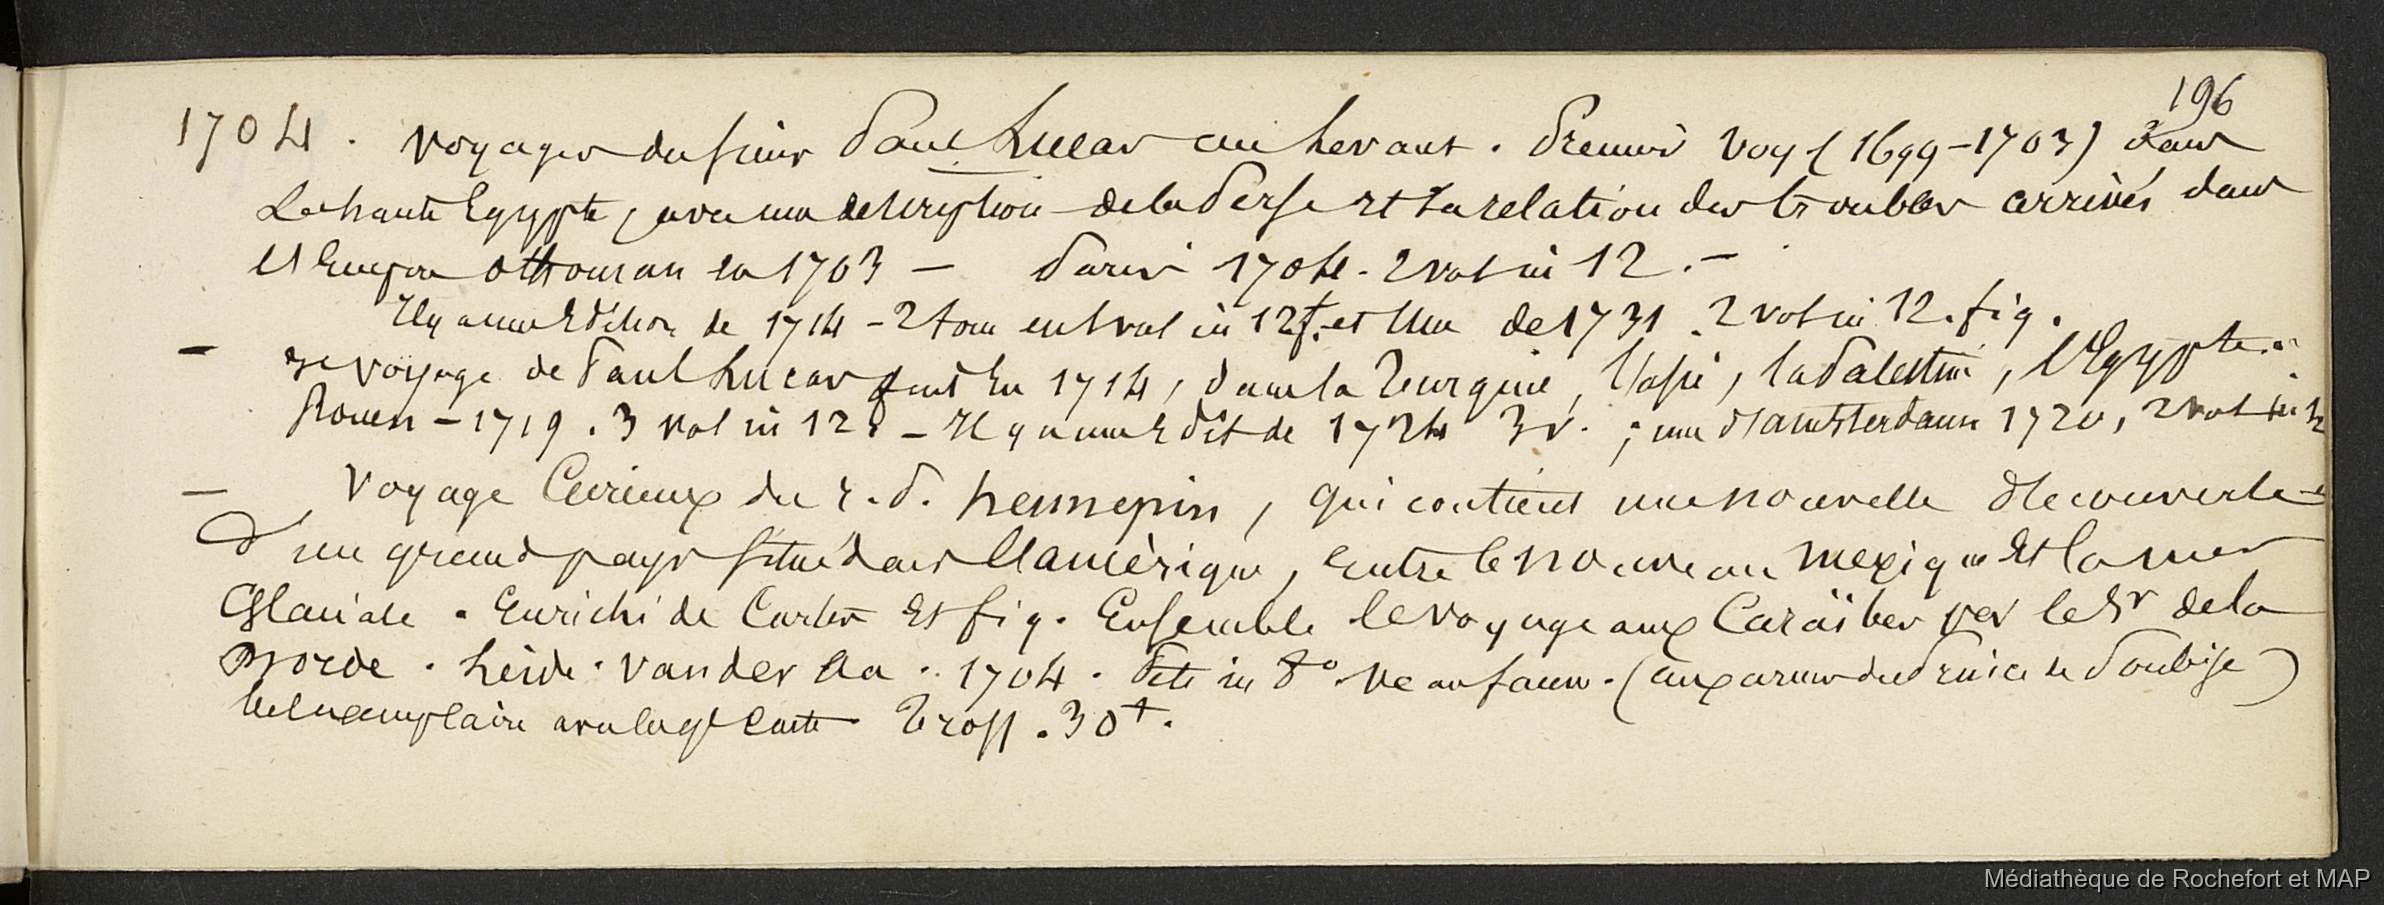 196
1704. voyages du sieur Paul Lucas au Levant. Premier voy. (1699-1703) dans
La haute Egypte, avec une description de la Perse et la relation des troubles arrivés dans
l'Empire othoman en 1703 — Paris 1704. 2 vol in 12. —
Il y a une Edition de 1714 - 2 tom en 1 vol in 12 f. et Une de 1731. 2 vol in 12. fig.
— 3e voyage de Paul Lucas fait En 1714, dans la Turquie, l'asie, la Palestine, l'Egypte.
Rouen - 1719. 3 vol in 12 - Il y a une Edit de 1724 3 v. ; une d'amsterdam 1720, 2 vol in 12
— Voyage Curieux du r. P. hennepin, qui contient une nouvelle découverte
d'un grand pays situé dans l'amérique, entre le nouveau mexique Et la mer
Glaciale. Enrichi de Cartes Et fig. Ensemble le voyage aux Caraïbes par le Sr de la
Borde. Leide. vander Aa. 1704. Petit in 8°. veau fauve. (aux armes du Prince de Soubise)
bel exemplaire avec la gde carte Tross. 30 f.
Médiathèque de Rochefort et MAP